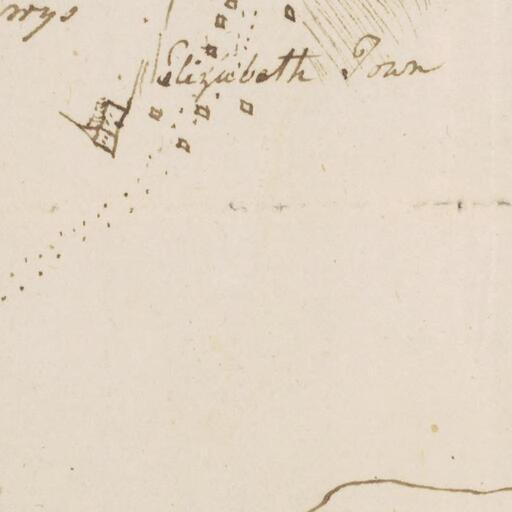 Elizabeth Town